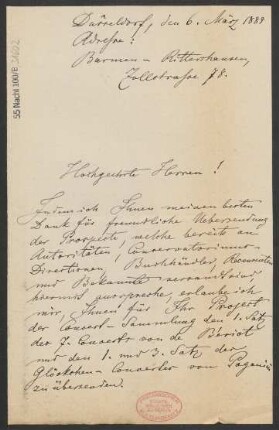 Düsseldorf, den 6. März 1889
Adresse:
Barmen - Rittershausen,
Zollstrasse 78.
55 Nachl 100/B
Hochgeehrte Herren!
Indem ich Ihnen meinen besten
Dank für freundliche Uebersendung
der Prospecte, welche bereits an
Autoritäten, Conservatoriums-
Directionen, Buchhändler, Recensenten
und Bekannte versandt sind
hiermit ausspreche, erlaube ich
mir, Ihnen für Ihr Project
der Concert-Sammlung den 1. Satz
des 7. Concerts von de Bériot
und den 1. und 3. Satz des
Glöckchen-Concertes von Paganini
zu übersenden.